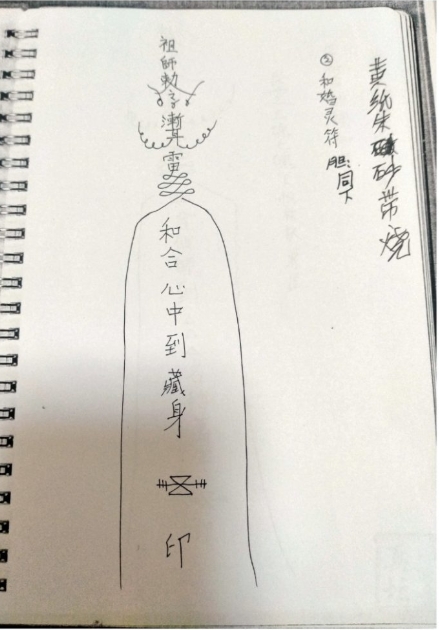 黄纸朱砂带烧
③和婚灵符 胆:同下
祖師勅令
雷
和合心中到藏身
印